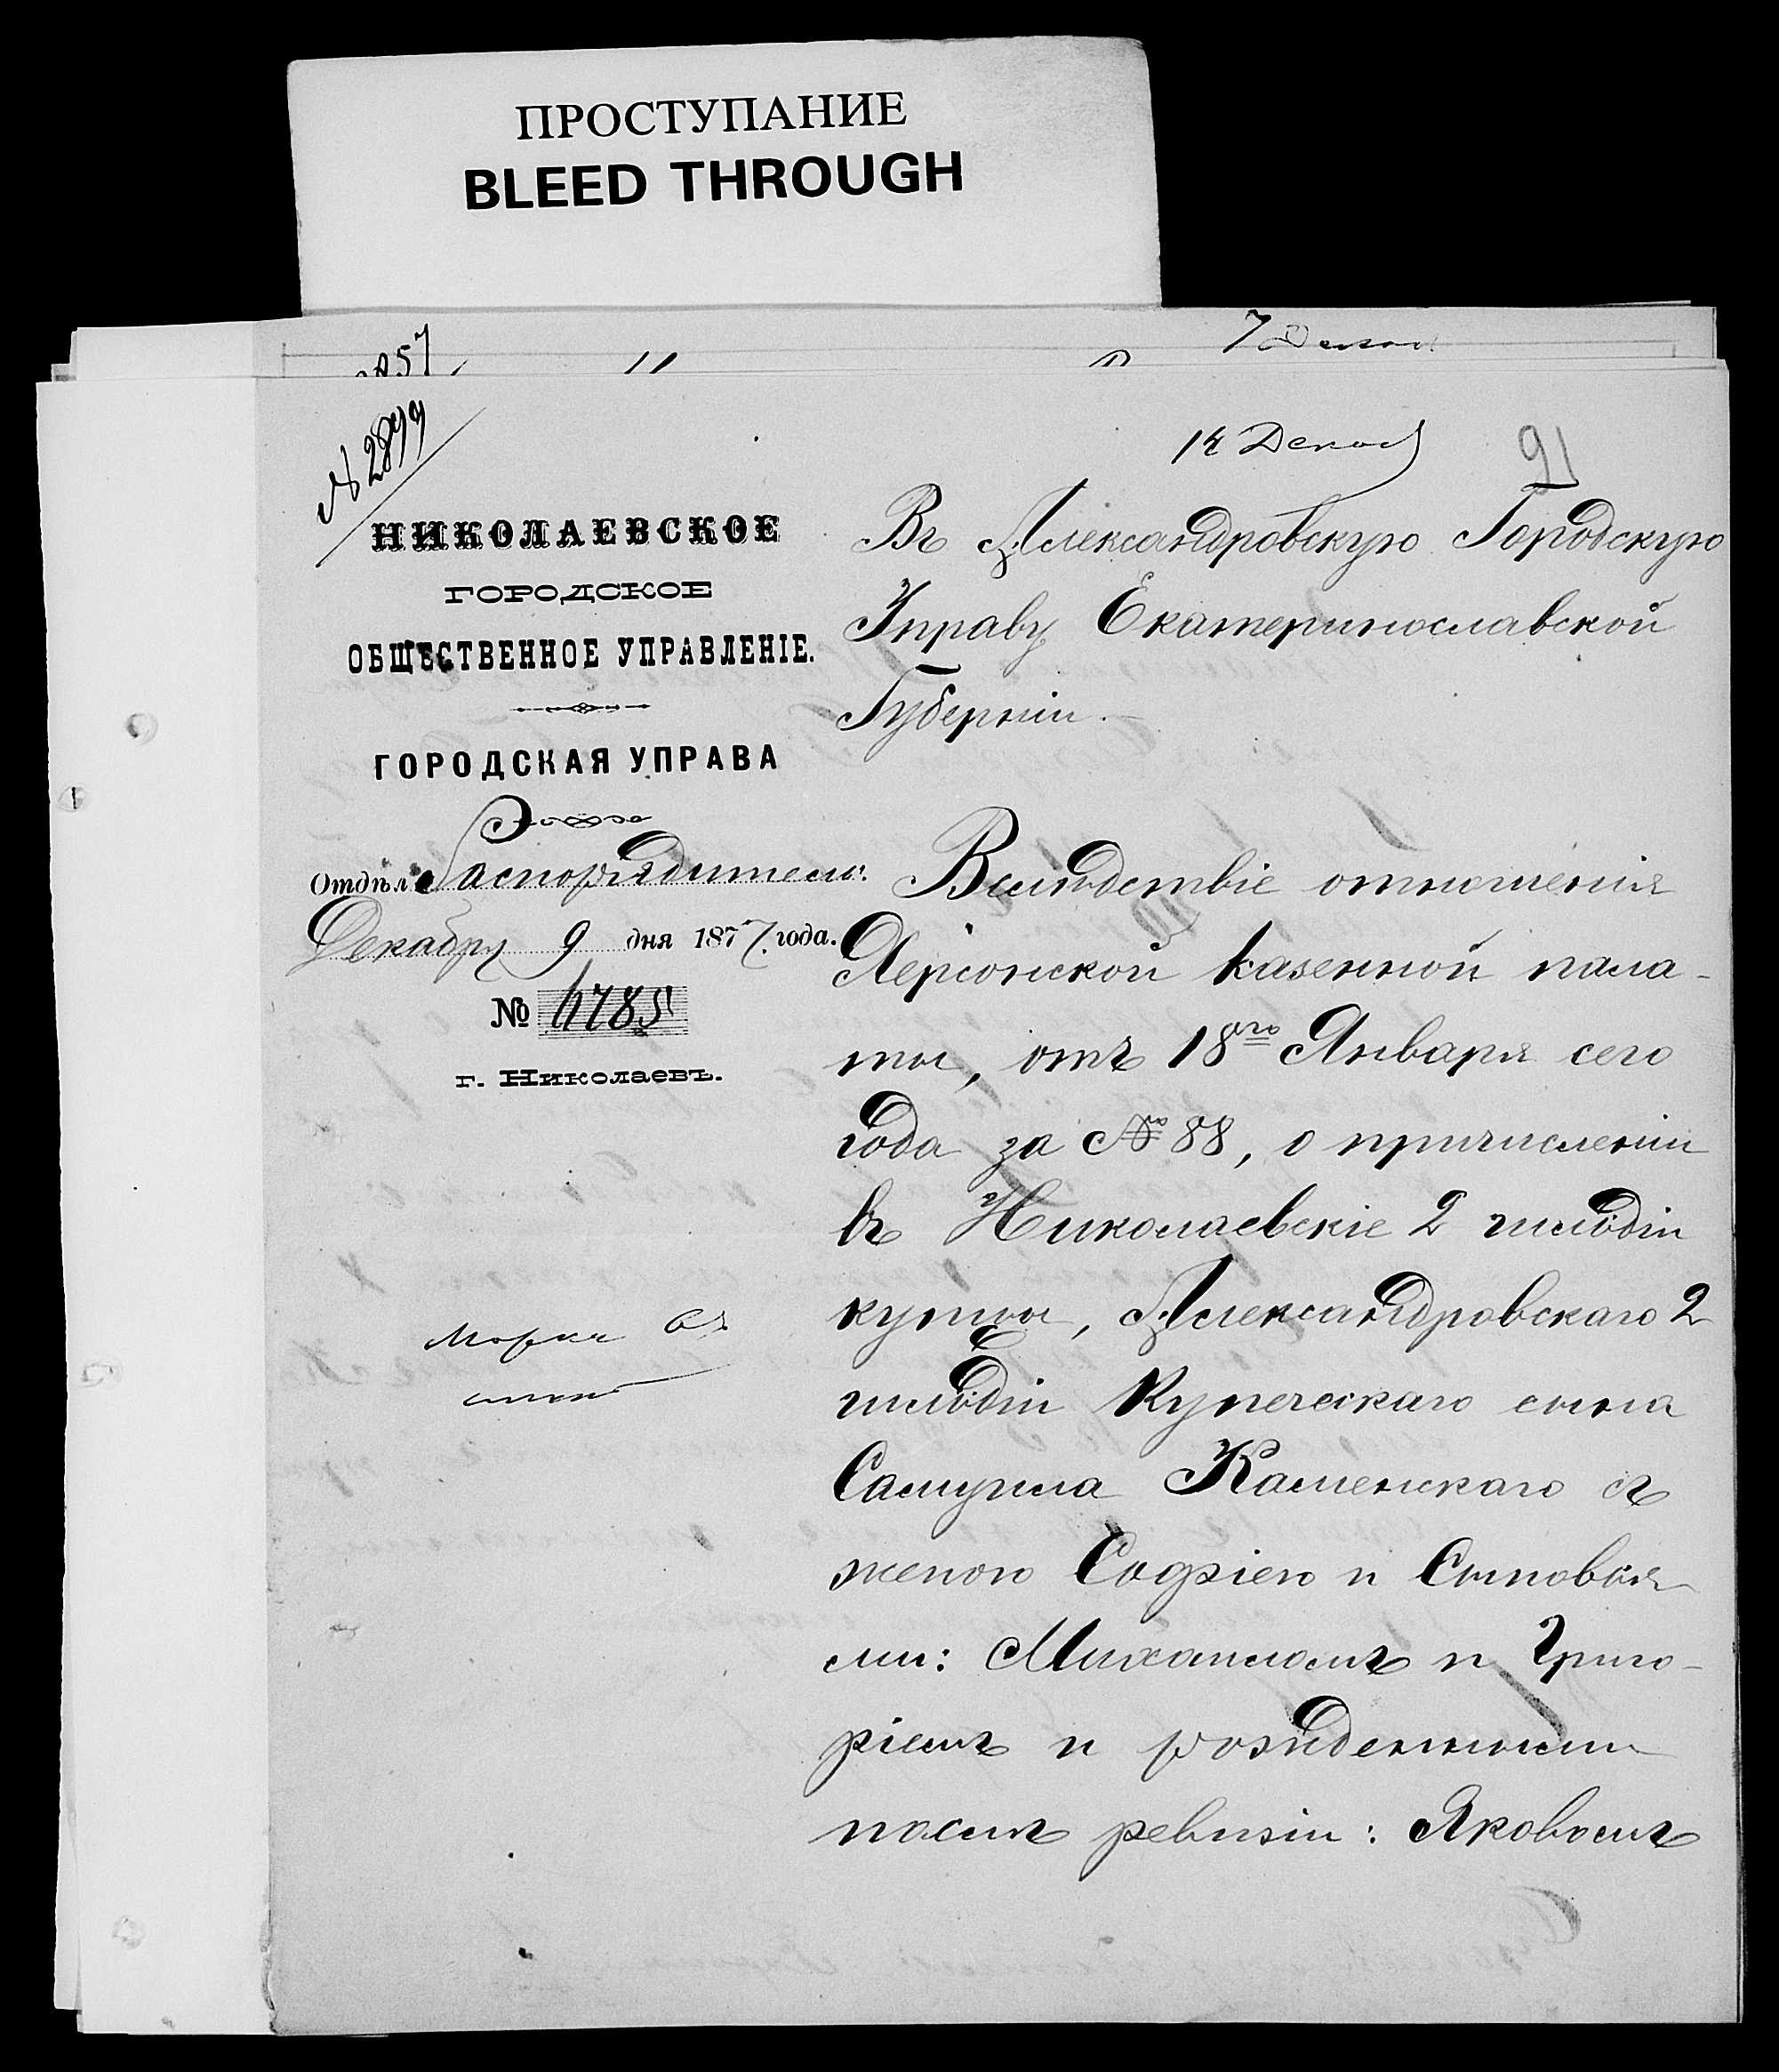 ПРОСТУПАНИЕ
BLEED THROUGH
7 Декаб
№ 2899
14 Декаб
91
НИКОЛАЕВСКОЕ
ГОРОДСКОЕ
ОБЩЕСТВЕННОЕ УПРАВЛЕНІЕ.
ГОРОДСКАЯ УПРАВА
Отдѣлъ Распорядитель:
Декабря 9 дня 1877 года.
№ 6785
г. Николаевъ.
Въ Александровскую Городскую
Управу Екатеринославской
Губерніи.
Вслѣдствіе отношенія
Херсонской казенной пала-
ты, отъ 18го Января сего
года за № 88, о причисленіи
въ Николаевскіе 2 гильдіи
купцы, Александровскаго 2
гильдіи Купеческаго сына
Самуила Каменскаго съ
женою Софіею и Сыновья-
ми: Михаиломъ и Григо-
ріемъ и рожденными
послѣ ревизіи: Яковомъ